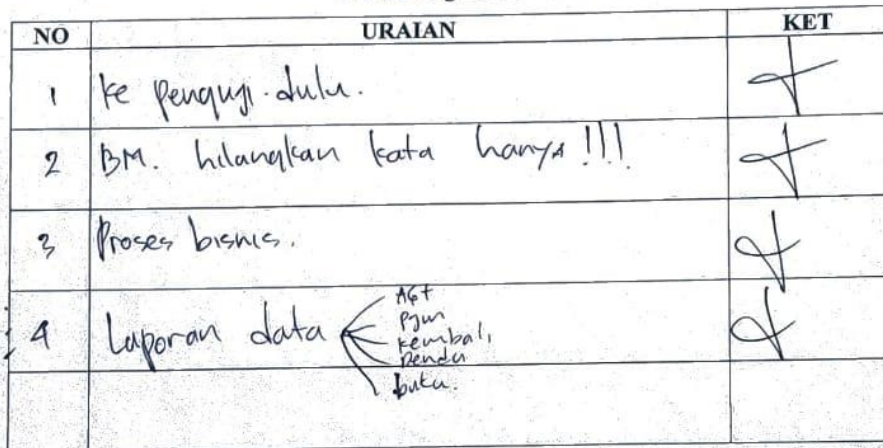 NO URAIAN KET
1 Ke penguji dulu.
2 BM. hilangkan kata hanya !!!
3 Proses bisnis.
4 Laporan data
Agt
Pjm
kembali
Denda
buku.